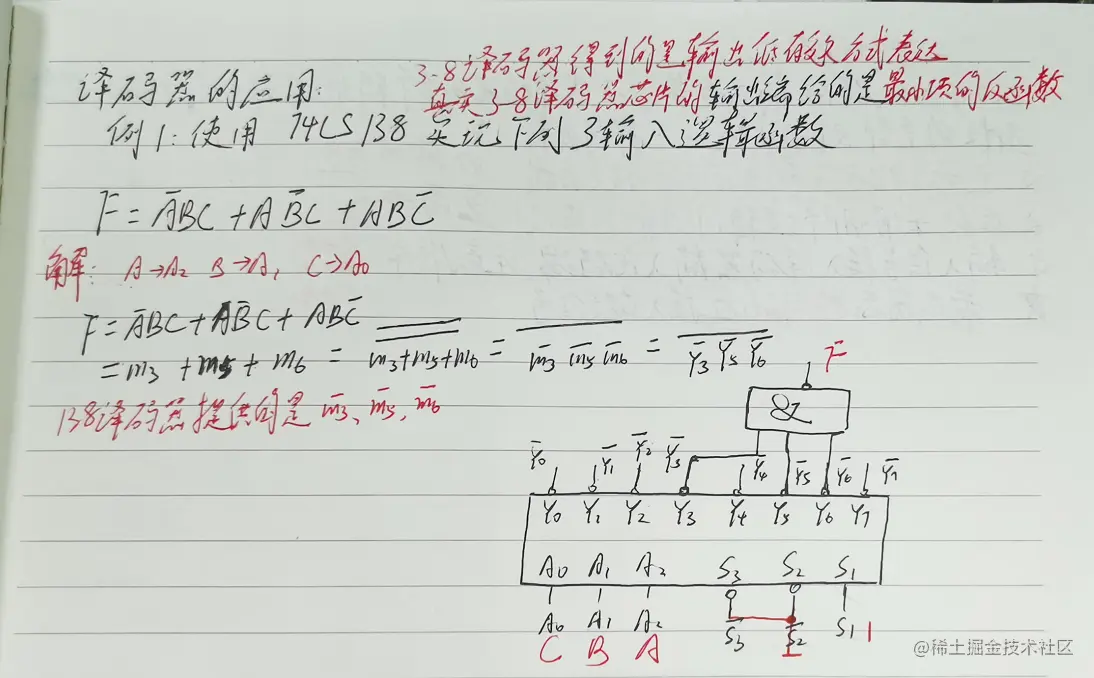 3-8译码器得到的是输出低有效方式表达
译码器的应用: 真实3-8译码器芯片的输出端给的是最小项的反函数
例1:使用 74LS138 实现下列3输入逻辑函数
F = A̅BC + AB̅C + ABC̅
解: A→A₂ B→A₁ C→A₀
F = A̅BC + AB̅C + ABC̅
= m₃ + m₅ + m₆ = \overline{\overline{m₃+m₅+m₆}} = \overline{m̅₃ m̅₅ m̅₆} = \overline{Y̅₃ Y̅₅ Y̅₆}
F
138译码器提供的是 m̅₃、m̅₅、m̅₆
&
Y̅₀ Y̅₁ Y̅₂ Y̅₃ Y̅₄ Y̅₅ Y̅₆ Y̅₇
Y₀ Y₁ Y₂ Y₃ Y₄ Y₅ Y₆ Y₇
A₀ A₁ A₂ S₃ S₂ S₁
A₀ A₁ A₂ S̅₃ S̅₂ S₁ 1
C B A
@稀土掘金技术社区